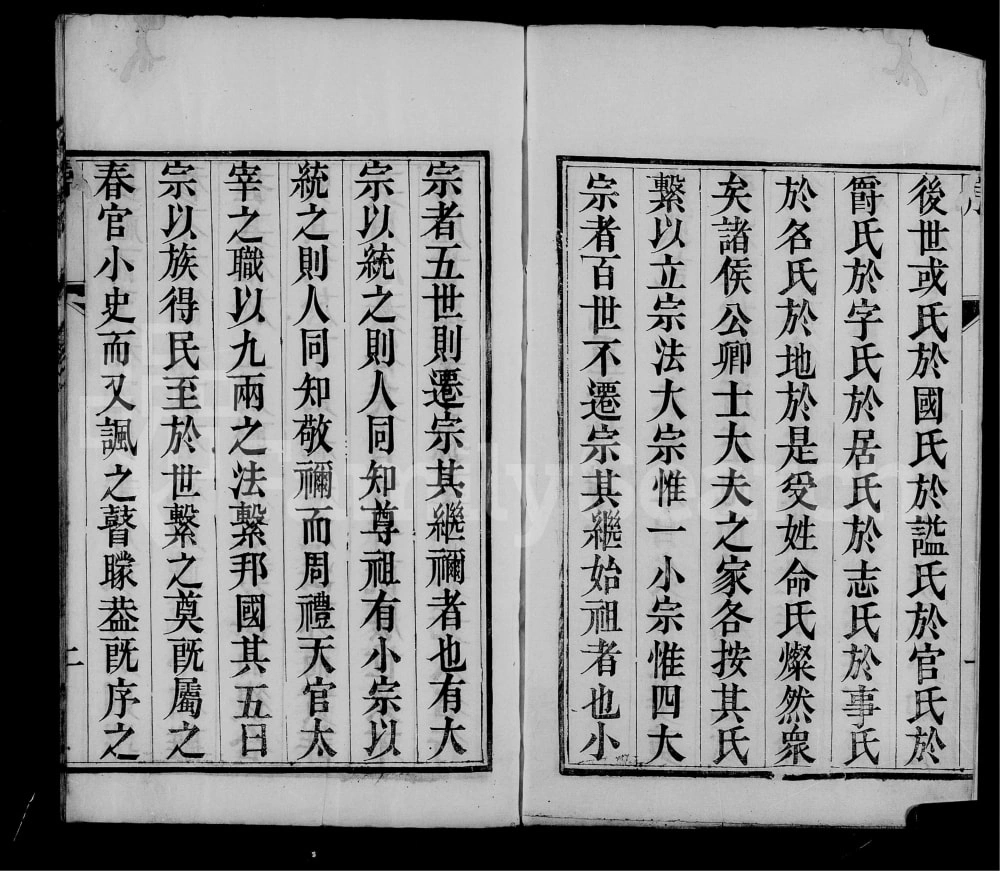 序
後世或氏於國氏於謚氏於官氏於
爵氏於字氏於居氏於志氏於事氏
於名氏於地於是受姓命氏燦然衆
矣諸侯公卿士大夫之家各按其氏
繫以立宗法大宗惟一小宗惟四大
宗者百世不遷宗其繼始祖者也小
宗者五世則遷宗其繼禰者也有大
宗以統之則人同知尊祖有小宗以
統之則人同知敬禰而周禮天官太
宰之職以九兩之法繫邦國其五曰
宗以族得民至於世繫之奠旣屬之
春官小史而又諷之瞽矇葢旣序之
二